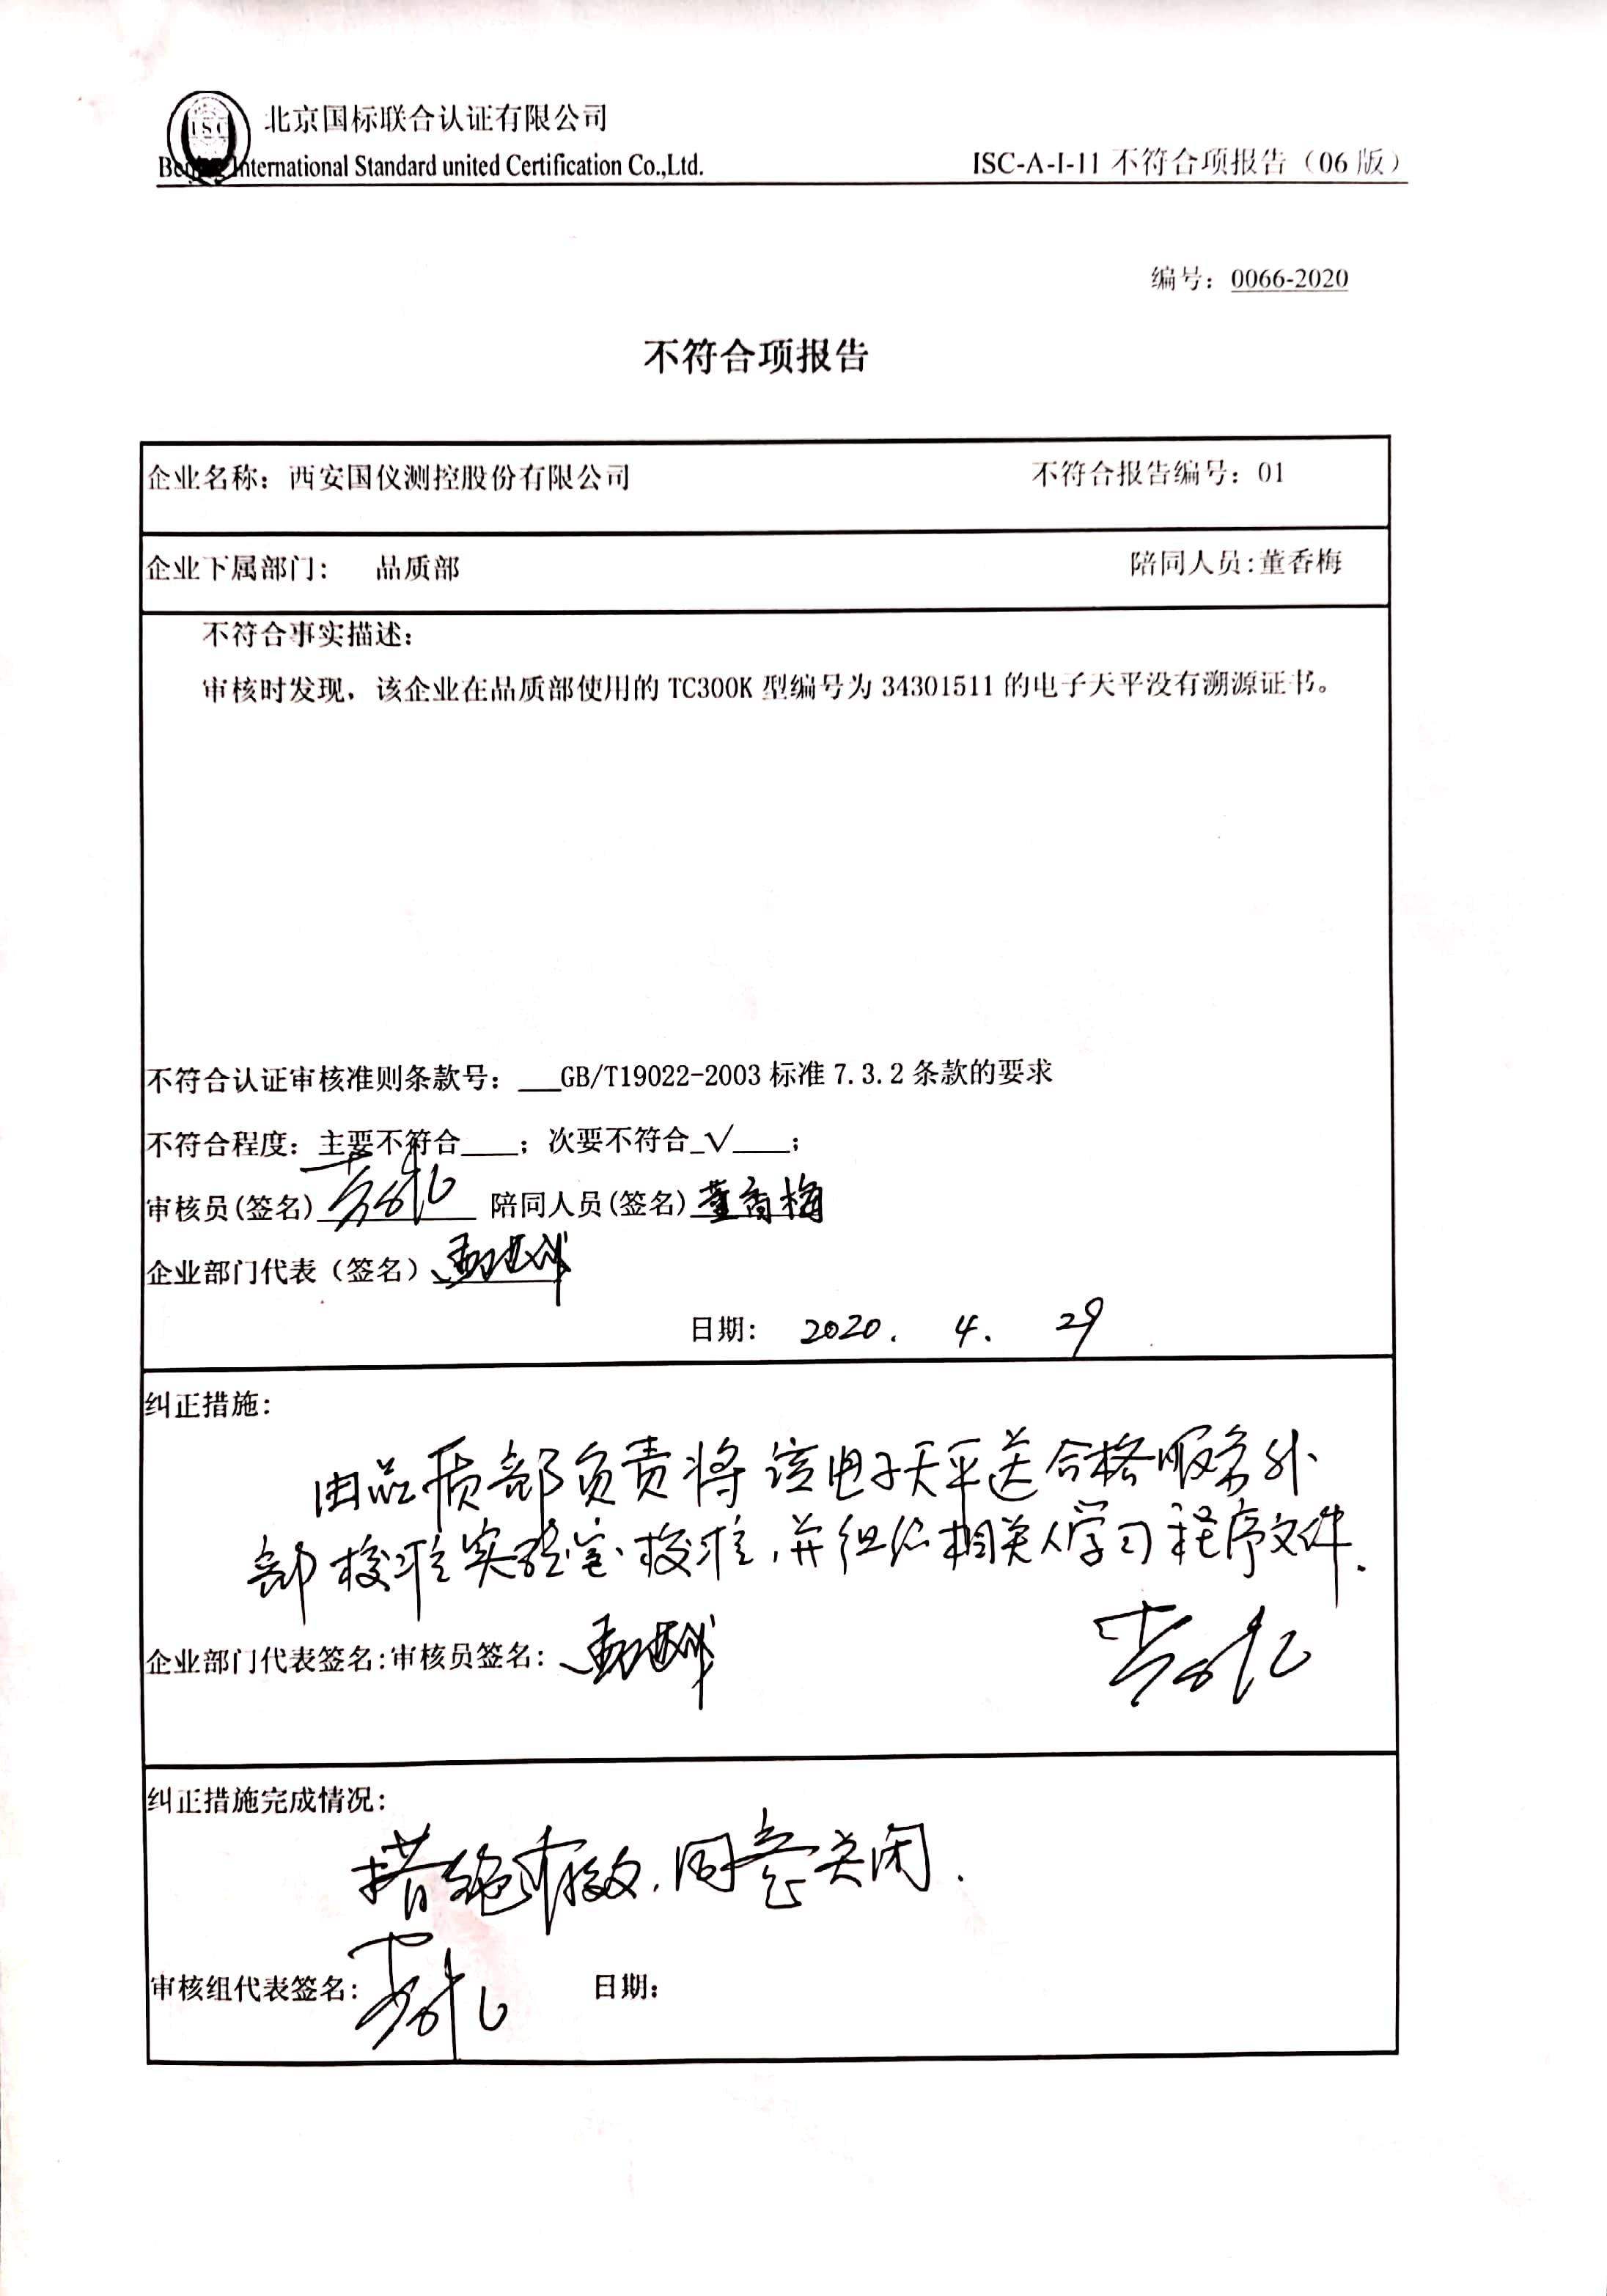 北京国标联合认证有限公司
International Standard united Certification Co.,Ltd.
ISC-A-I-11 不符合项报告（06 版）
编号：0066-2020
不符合项报告
企业名称：西安国仪测控股份有限公司 不符合报告编号：01
企业下属部门： 品质部 陪同人员:董香梅
不符合事实描述：
审核时发现，该企业在品质部使用的 TC300K 型编号为 34301511 的电子天平没有溯源证书。
不符合认证审核准则条款号：___GB/T19022-2003 标准 7.3.2 条款的要求
不符合程度：主要不符合____；次要不符合_√____；
审核员(签名) 陪同人员(签名) 董香梅
企业部门代表（签名）
日期： 2020. 4. 29
纠正措施：
由品质部负责将该电子天平送合格服务外
部校准实验室校准,并组织相关人学习程序文件.
企业部门代表签名:审核员签名：
纠正措施完成情况：
措施有效,同意关闭.
审核组代表签名： 日期：